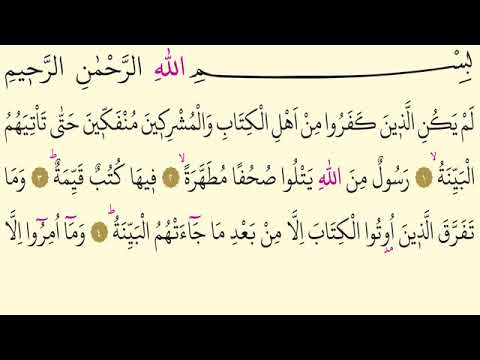 بِسْمِ اللهِ الرَّحْمٰنِ الرَّح۪يمِ
لَمْ يَكُنِ الَّذ۪ينَ كَفَرُوا مِنْ اَهْلِ الْكِتَابِ وَالْمُشْرِك۪ينَ مُنْفَكّ۪ينَ حَتّٰى تَأْتِيَهُمُ
الْبَيِّنَةُۙ ﴿١﴾ رَسُولٌ مِنَ اللهِ يَتْلُوا صُحُفًا مُطَهَّرَةًۙ ﴿٢﴾ ف۪يهَا كُتُبٌ قَيِّمَةٌۜ ﴿٣﴾ وَمَا
تَفَرَّقَ الَّذ۪ينَ اُو۫تُوا الْكِتَابَ اِلَّا مِنْ بَعْدِ مَا جَٓاءَتْهُمُ الْبَيِّنَةُۜ ﴿٤﴾ وَمَٓا اُمِرُٓوا اِلَّا